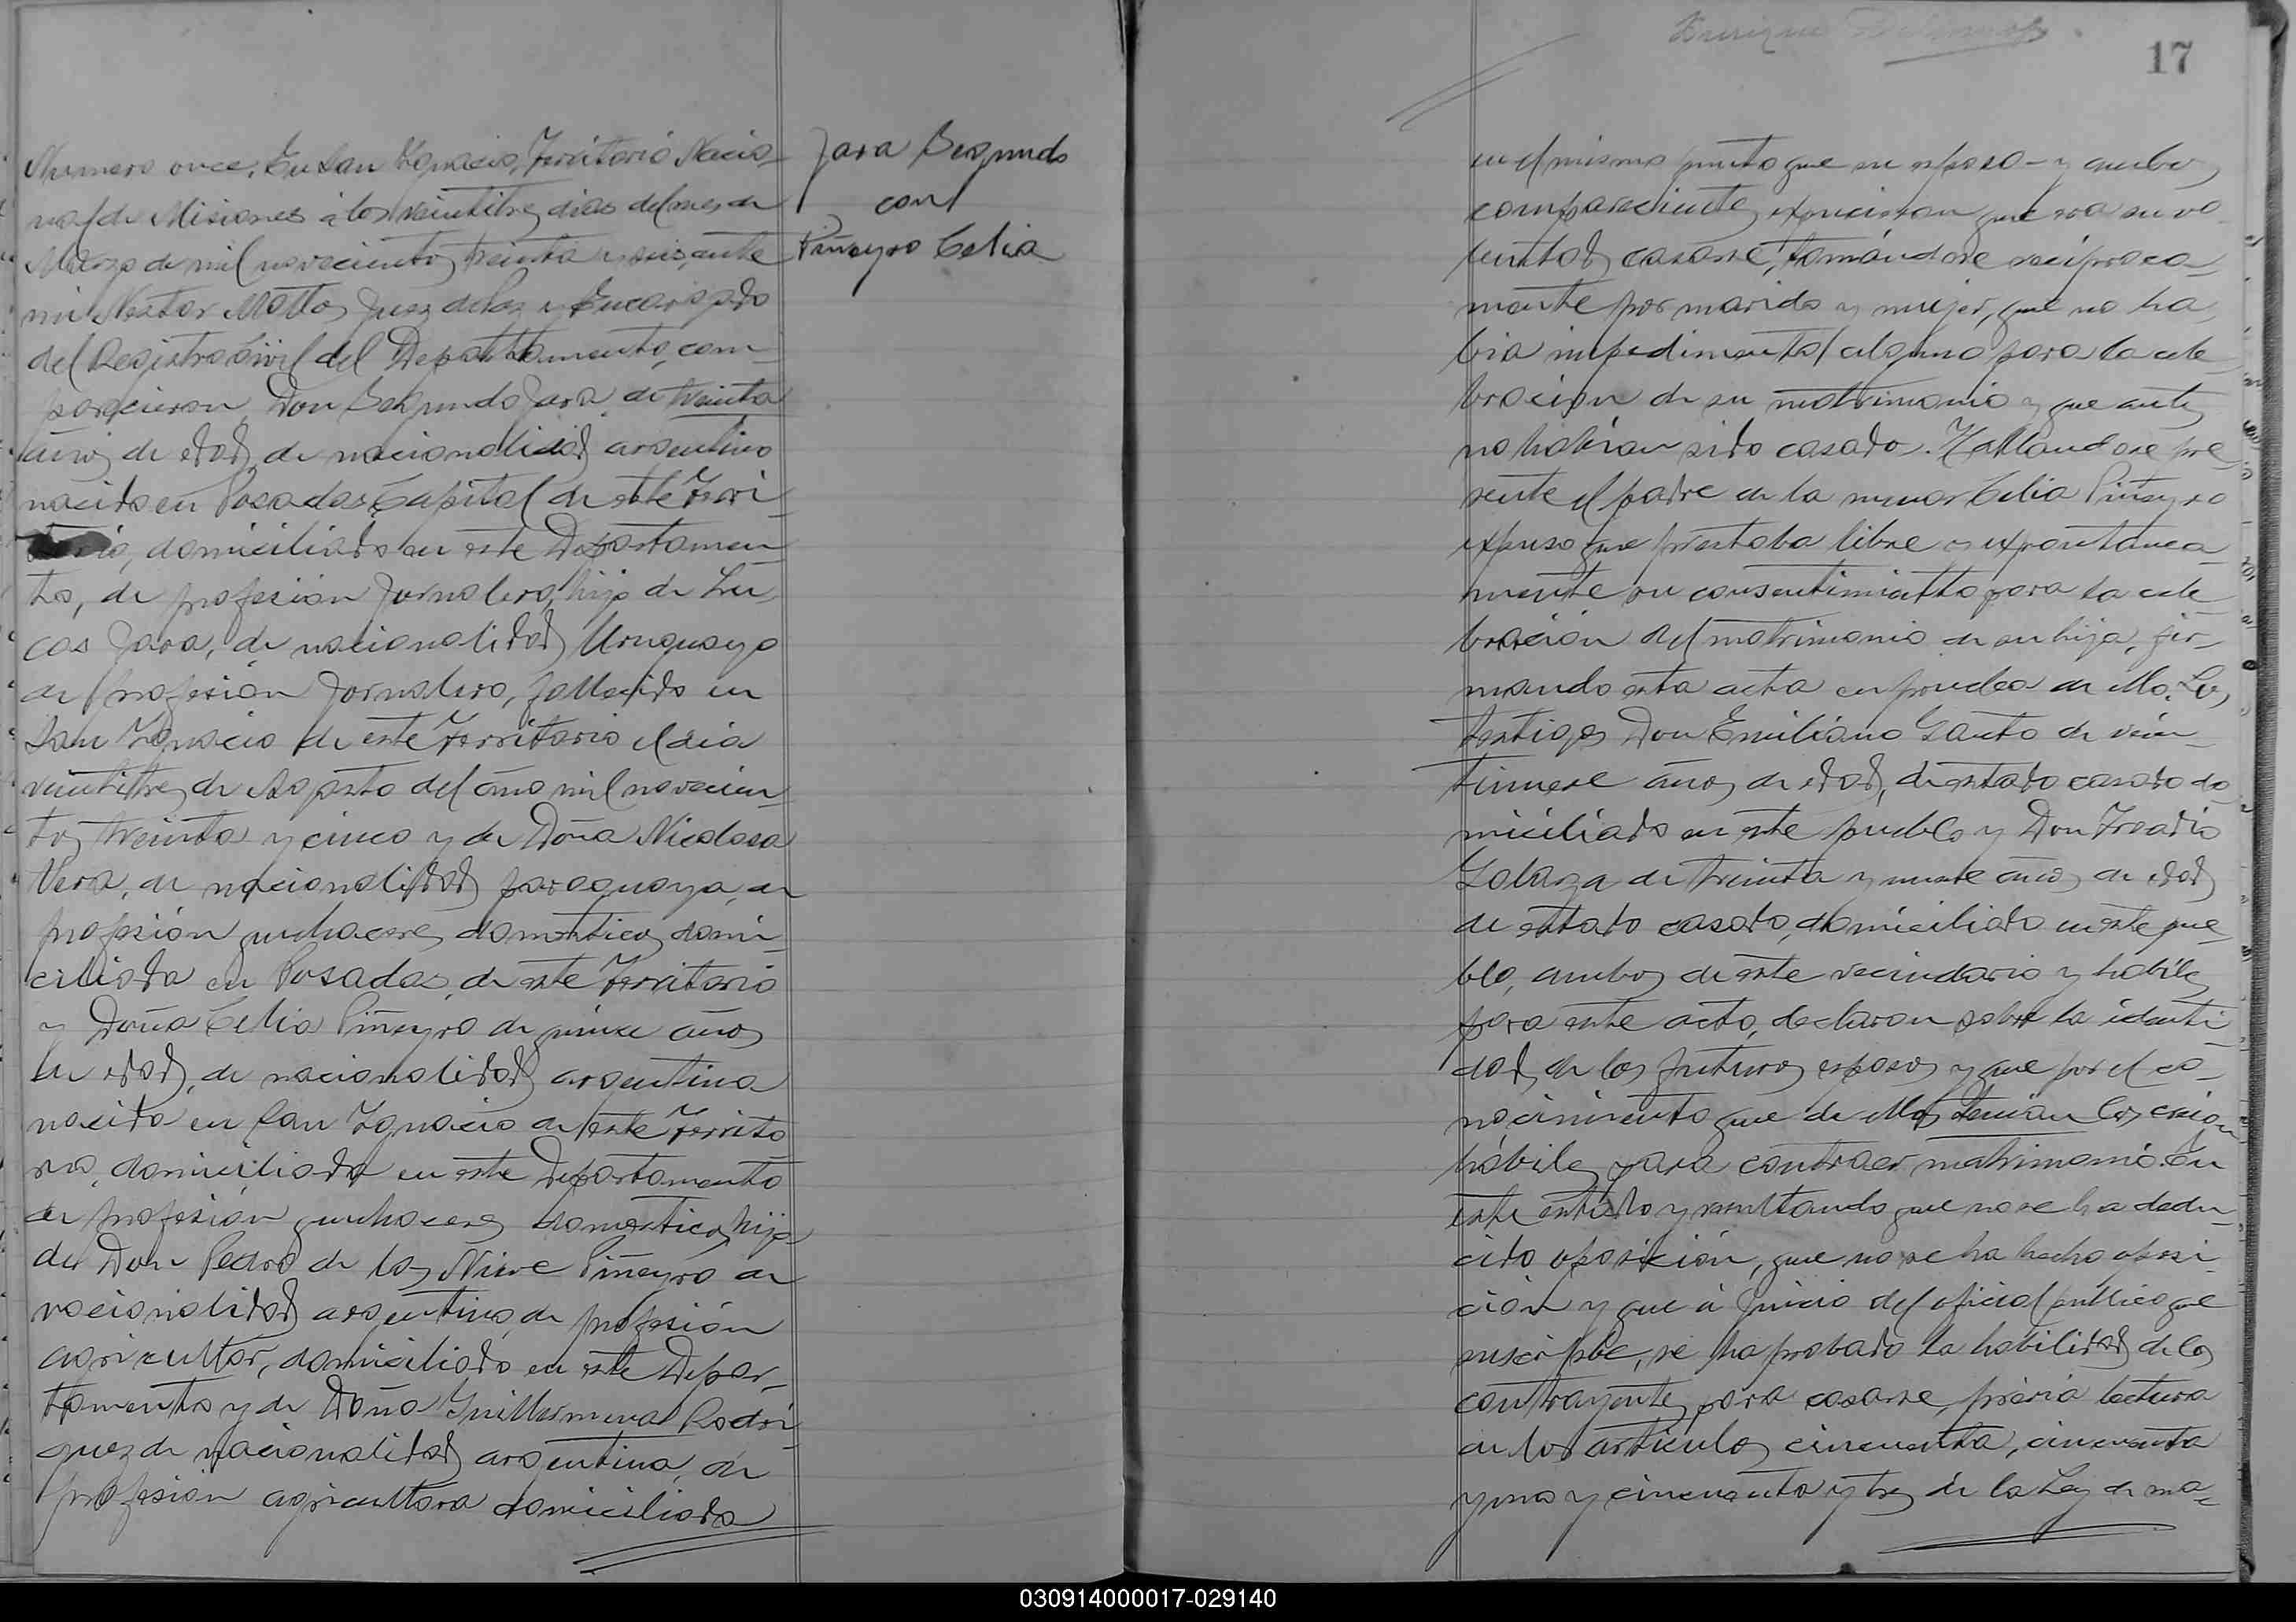 Numero once. En San Ygnacio, Territorio Nacio-
nal de Misiones á los veintitres dias del mes de
Marzo de mil novecientos treinta y seis, ante
mi Nestor Motto, Juez de Paz y Encargado
del Registro Civil del Departtamento, com-
parecieron Don Segundo Jara de treinta
años de edad, de nacionalidad argentino
nacido en Posadas, Capital de este Terri-
torio, domiciliado en este Departamen
to, de profesión Jornalero, hijo de Lu-
cas Jara, de nacionalidad Uruguayo
de profesión Jornalero, fallecido en
San Ygnacio de este Territorio el dia
veintitres de Agosto del año mil novecien-
tos treinta y cinco y de Doña Nicolasa
Vera, de nacionalidad paraguaya, de
profesión quehaceres domesticos, domi-
ciliada en Posadas, de este Territorio
y Doña Celia Piñeyro de quince años
de edad, de nacionalidad argentina
nacida en San Ygnacio de este Territo
rio, domiciliada en este Departamento
de profesión quehaceres domesticos, hija
de Don Pedro de las Nieve Piñeyro de
nacionalidad argentino, de profesión
agricultor, domiciliado en este Depar-
tamento y de Doña Guillermina Rodri-
guez de nacionalidad argentina, de
profesion agricultora domiciliada
Jara Segundo
con
Piñeyro Celia
Enrique
17
en el mismo punto que su esposo - y ambos
comparecientes expresaron que era su vo
luntad casarse, tomándose recíproca-
mente por marido y mujer, que no ha-
bia impedimento alguno para la cele-
bracion de su matrimonio y que antes
no habían sido casado. Hallandose pre-
sente el padre de la menor Celia Piñeyro
expuso que prestaba libre y expontanea-
mente su consentimiento para la cele-
bración del matrimonio de su hija, fir-
mando esta acta en prueba de ello. Los
testigos Don Emiliano Gauto de vein-
tinueve años de edad, de estado casado do-
miciliado en este pueblo y Don
Galarza de treinta y nueve años de edad
de estado casado, domiciliado en este pue-
blo, ambos de este vecindario y hábiles
para este acto, declaron sobre la identi-
dad de los futuros esposos y que por el co-
nocimiento que de ellos tenian los creian
hábiles para contraer matrimonio. En
este estado y resultando que no se ha dedu-
cido oposición, que no se ha hecho oposi-
ción y que á juicio del oficial público que
suscribe, se ha probado la habilidad de los
contrayentes para casarse, prévia lectura
de los artículos cincuenta, cincuenta
y uno y cincuenta y tres de la Ley de ma-
030914000017-029140